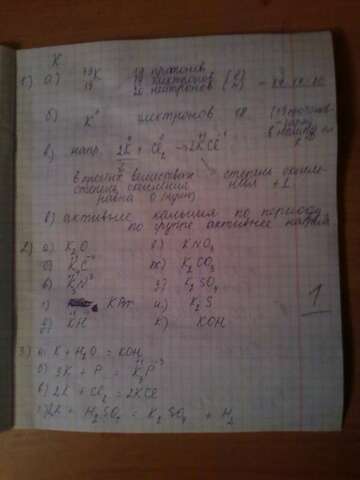 K
1) а) 39 K 19 протонов
19 19 электронов
20 нейтронов
б) K⁺ электронов 18
в) напр. 2K + Cl₂ → 2KCl
в простых веществах степень окисле-
степень окисления ния +1
равна 0 (нулю)
в) активнее кальция по периоду
по группе активнее натрия
2) а) K₂O е) KNO₃
б) ж) K₂CO₃
в) K₃N з) K₂SO₄
г) и) K₂S
д) KH к) KOH
1
3) а) K + H₂O = KOH
б) 3K + P = K₃P
в) 2K + Cl₂ = 2KCl
г) 2K + H₂SO₄ = K₂SO₄ + H₂